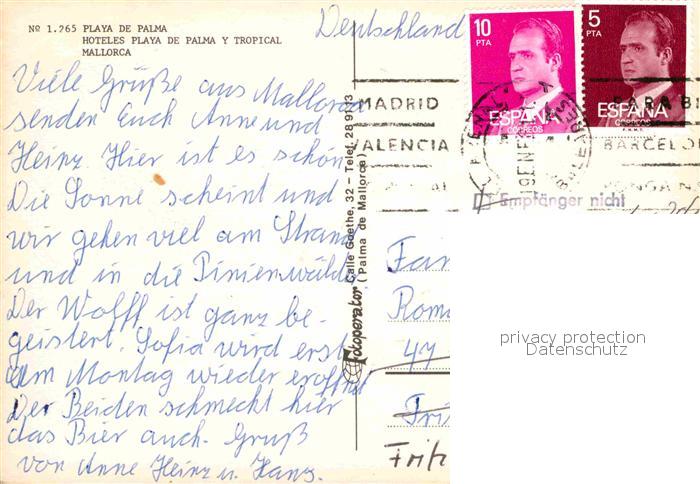 Nº 1.265 PLAYA DE PALMA
HOTELES PLAYA DE PALMA Y TROPICAL
MALLORCA
Deutschland
Viele Grüße aus Mallorca
senden Euch Anne und
Heinz Hier ist es schön
Die Sonne scheint und
wir gehen viel am Stran
und in die Pinienwälde
Der Wolff ist ganz be-
geistert. Sofia wird erst
am Montag wieder eröffnet
Den Beiden schmeckt hier
das Bier auch. Gruß
von Anne Heinz u. Hans.
Fotoperator Calle Goethe, 32 - Telef. 28 91
(Palma de Mallorca)
10
PTA
ESPAÑA
CORREOS
5
PTA
ESPAÑA
CORREOS
MADRID
VALENCIA
PARA
BARCELO
Empfänger nicht
Fam
Rom
47
Fri
Fritz
privacy protection
Datenschutz